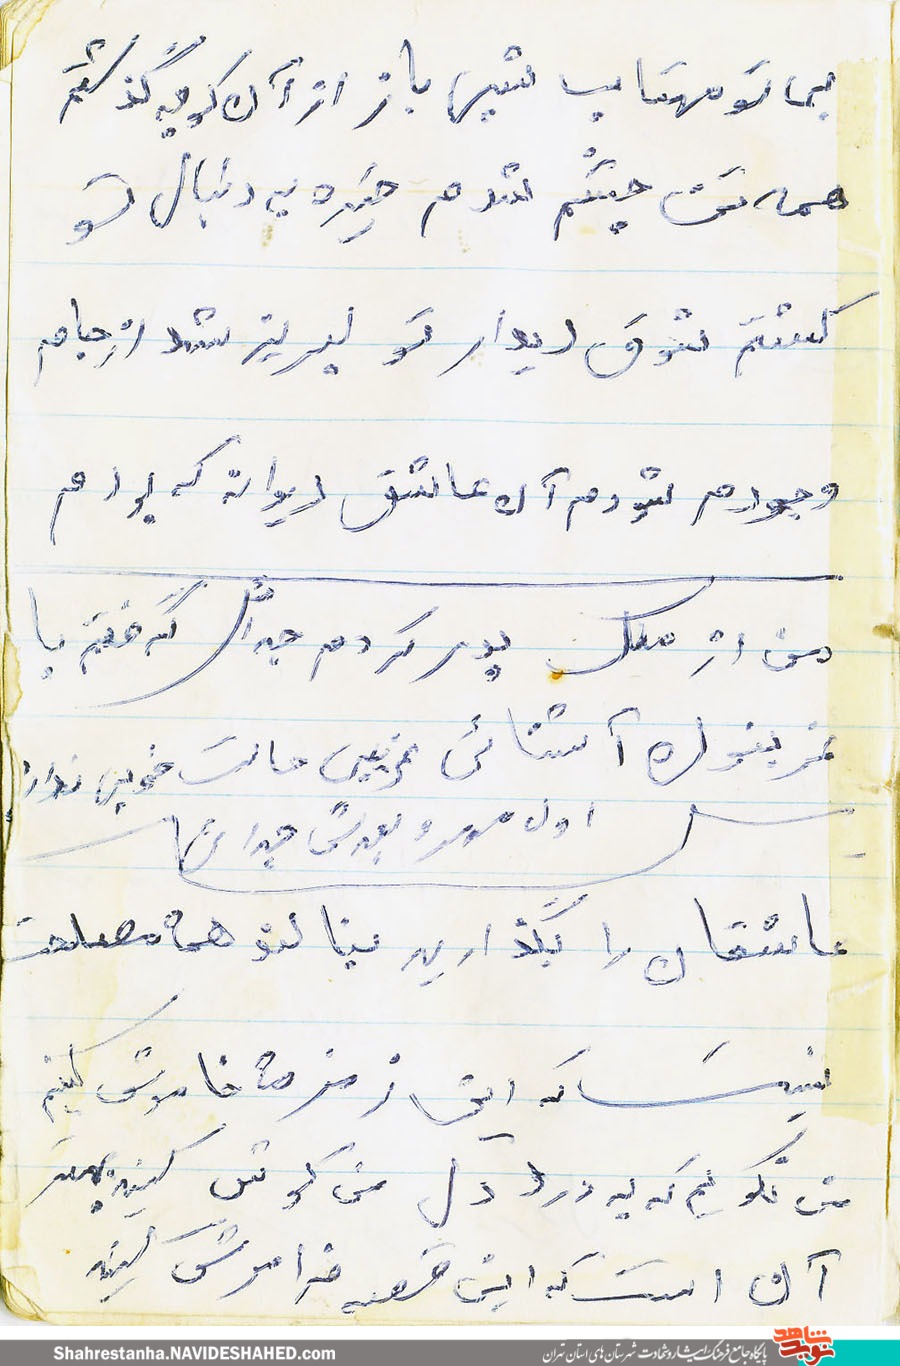 بی تو مهتاب شبی باز از آن کوچه گذشتم
همه تن چشم شدم خیره به دنبال تو
گشتم شوق دیدار تو لبریز شد از جام
وجودم شودم آن عاشق دیوانه که بودم
من از ملک پدر کردم جدائی گرفتم با
غریبون آشنائی غریبی حالت خوبی ندارد
اول مهر و بعدش جدائی
عاشقان را بگذارید بنالند همه مصلحت
نیست که این زمزمه خاموش کنیم
من نگویم که به درد دل من گوش کنید بهتر
آن است که این قصه فراموش کنید
Shahrestanha.NAVIDESHAHED.com
پایگاه جامع فرهنگ ایثار و شهادت شهرستان های استان تهران
نوید شاهد